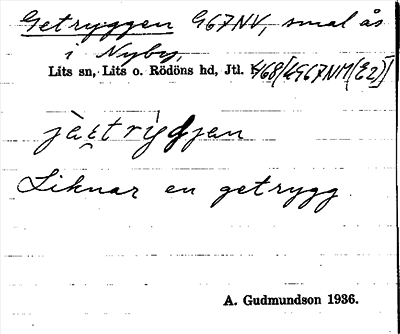 Getryggen 967NV, smal ås
i Nyby,
Lits sn, Lits o. Rödöns hd, Jtl. 468[4967NM(E2)]
jàεtrìgjen
Liknar en getrygg.
A. Gudmundson 1936.